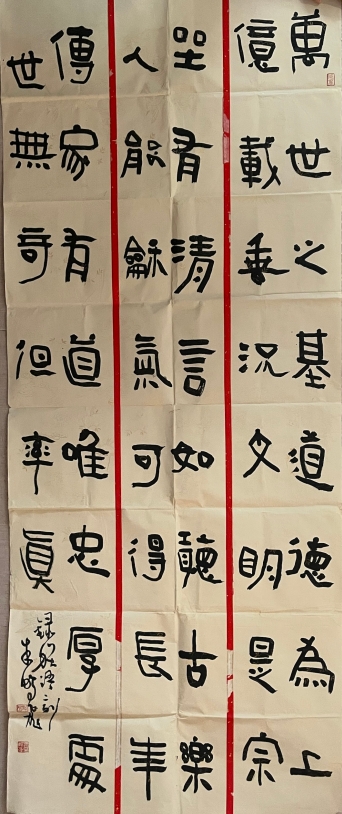 萬世之基道德為上
億載垂況文明是宗
坐有清言如聽古樂
人能龢氣可得長年
傳家有道唯忠厚處
世無奇但率眞